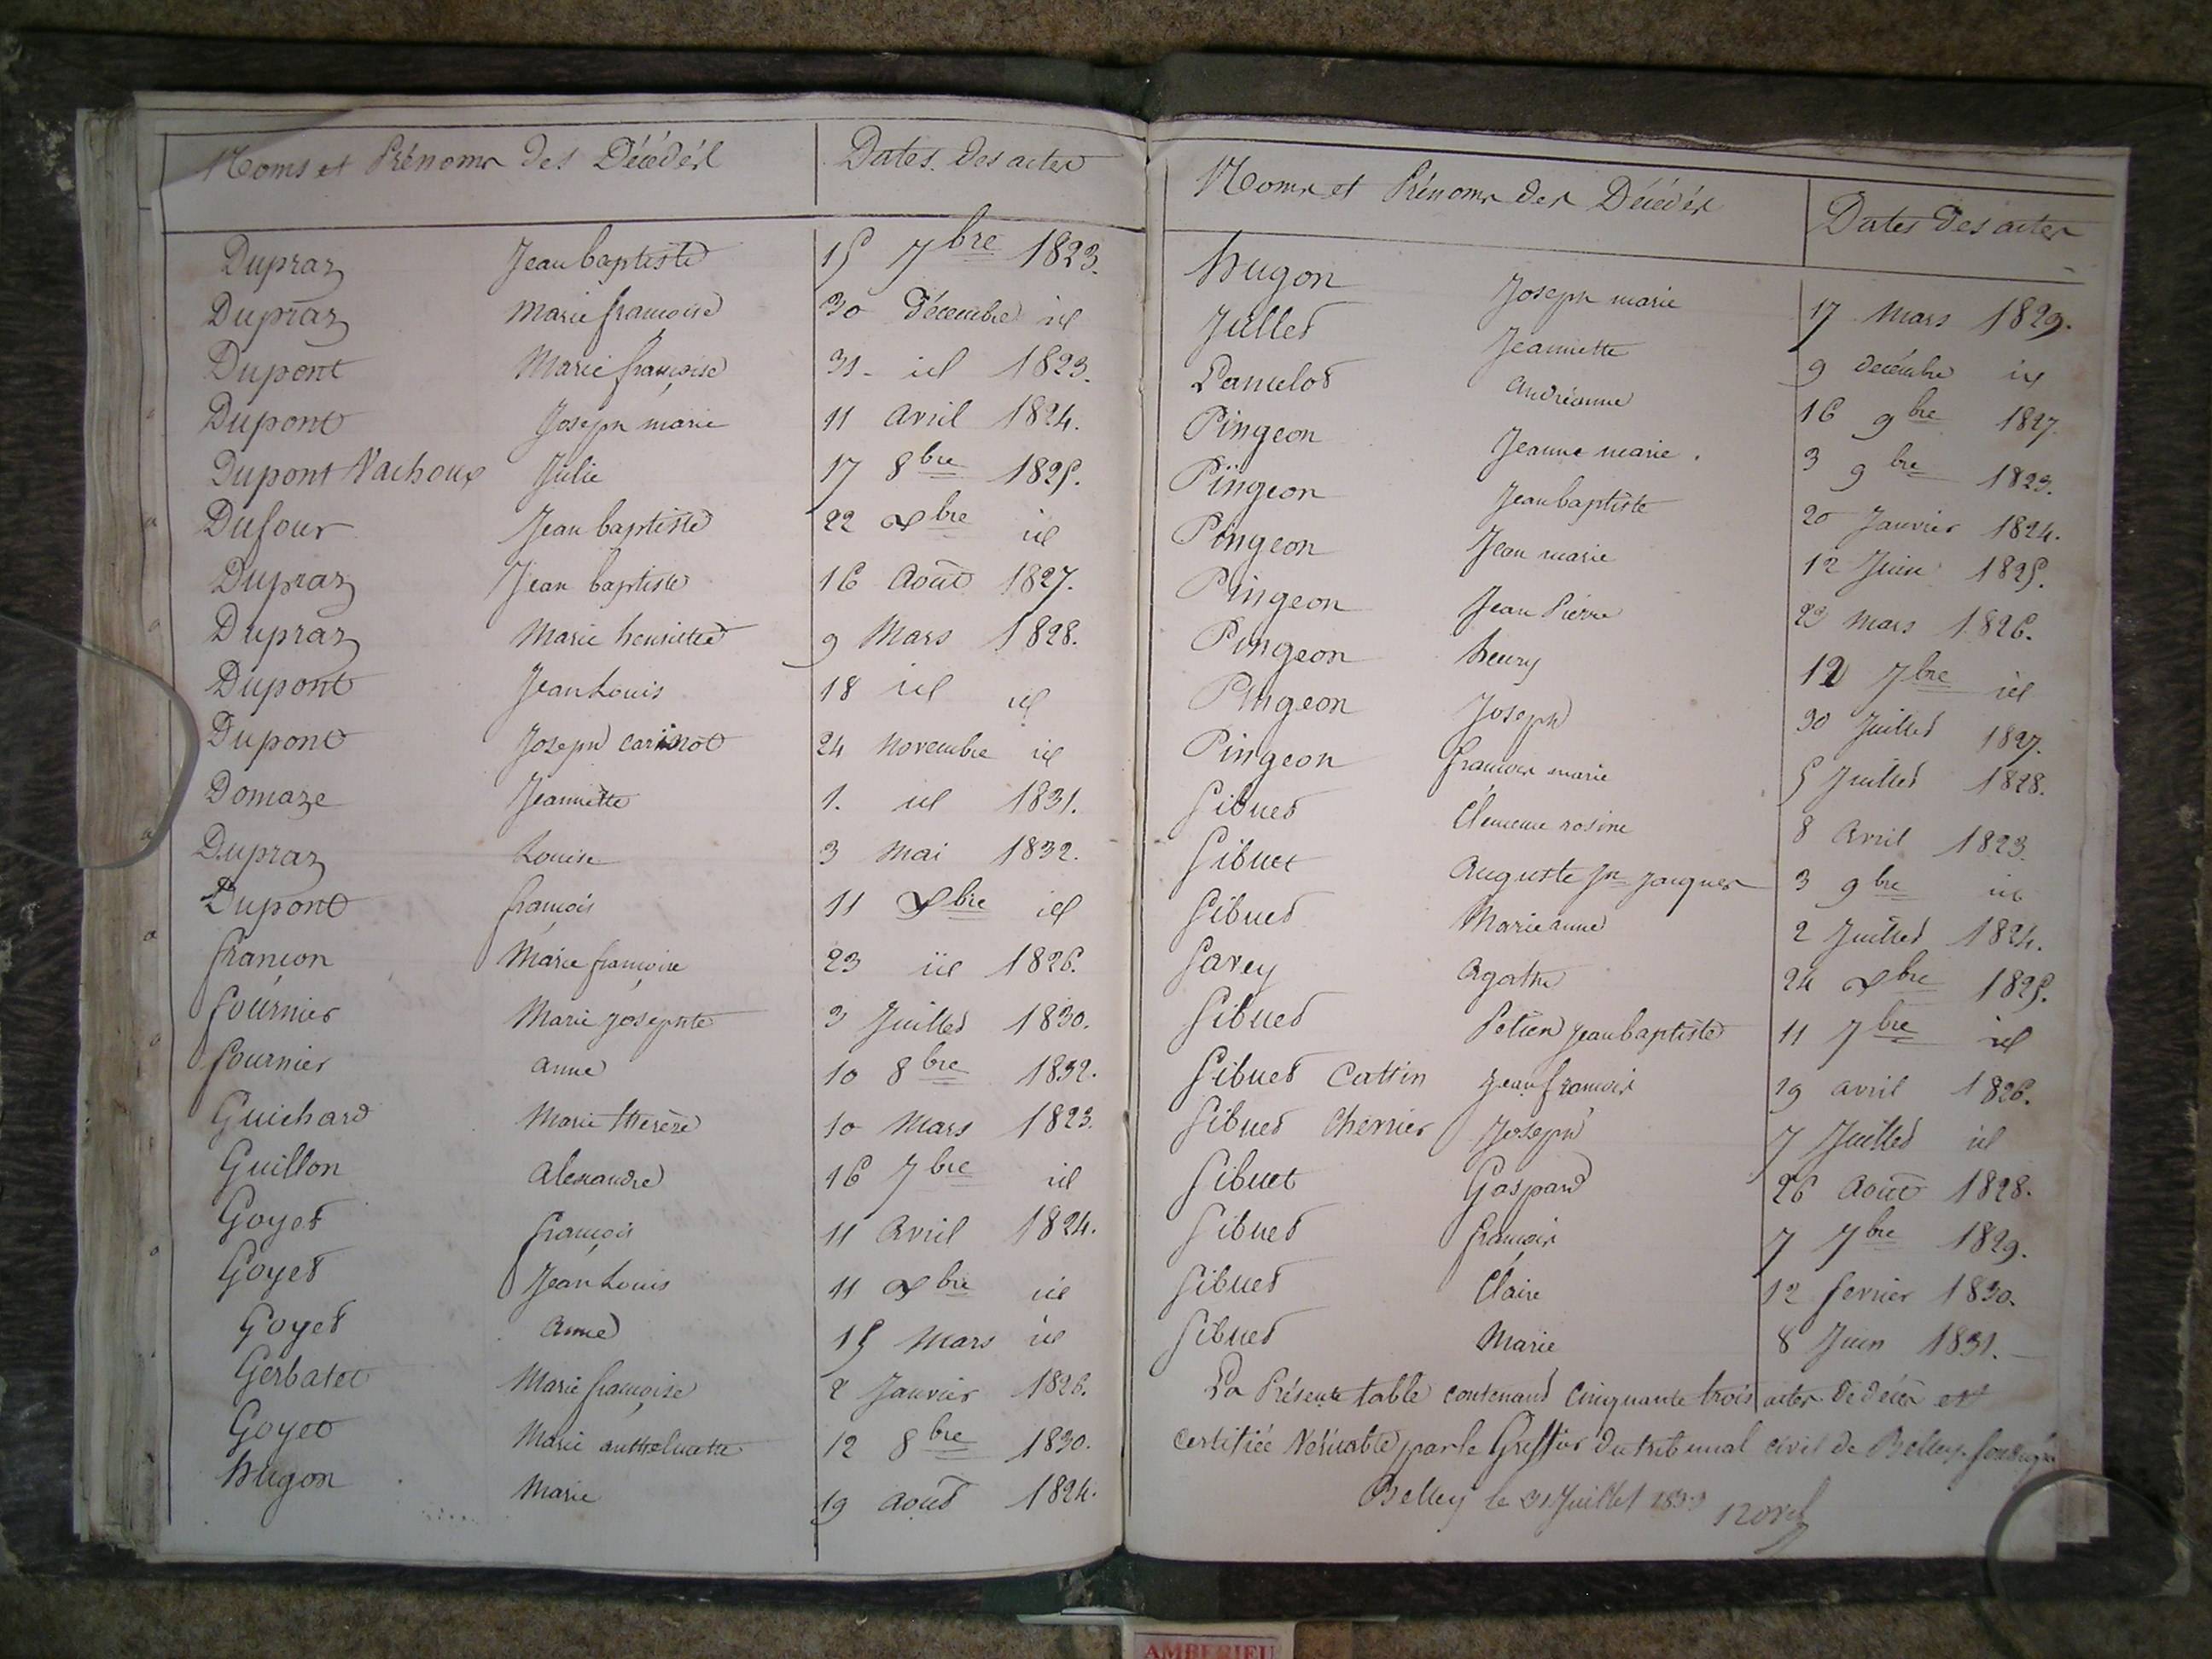 Noms et Prénoms des Décédés Dates des actes
Dupraz Jean baptiste 15 7bre 1823.
Dupraz Marie françoise 30 décembre id
Dupont Marie françoise 31 id 1823.
Dupont Joseph marie 11 avril 1824.
Dupont Vachoux Julie 17 8bre 1825.
Dufour Jean baptiste 22 xbre id
Dupraz Jean baptiste 16 Août 1827.
Dupraz Marie henriette 9 Mars 1828.
Dupont Jean Louis 18 id id
Dupont Joseph 24 Novembre id
Domaze Jeannette 1. id 1831.
Dupraz Louise 3 Mai 1832.
Dupont françois 11 xbre id
françon Marie françoise 23 id 1826.
fournier Marie Josephte 3 Juillet 1830.
fournier anne 10 8bre 1832.
Guichard Marie therèze 10 Mars 1823.
Guillon alexandre 16 7bre id
Goyet françois 11 Avril 1824.
Goyet Jean Louis 11 xbre id
Goyet anne 15 Mars id
Gerbatet Marie françoise 2 Janvier 1826.
Goyet Marie 12 8bre 1830.
hugon Marie 19 août 1824.
Noms et Prénoms des Décédés Dates des actes
hugon Joseph marie 17 Mars 1829.
Juillet Jeannette 9 décembre id
Lancelot andréanne 16 9bre 1827.
Pingeon Jeanne marie. 3 9bre 1823.
Pingeon Jean baptiste 20 Janvier 1824.
Pingeon Jean marie 12 Juin 1825.
Pingeon Jean Pierre 23 Mars 1826.
Pingeon henry 12 7bre id
Pingeon Joseph 30 Juillet 1827.
Pingeon françois marie 5 Juillet 1828.
Sibuet Clemence rosine 8 Avril 1823.
Sibuet Auguste Jn Jacques 3 9bre id
Sibuet Marie anne 2 Juillet 1824.
Savey Agathe 24 xbre 1825.
Sibuet Jean baptiste 11 7bre id
Sibuet Cattin Jean françois 19 avril 1826.
Sibuet Chenier Joseph 7 Juillet id
Sibuet Gaspard 26 Août 1828.
Sibuet françois 7 7bre 1829.
Sibuet Claire 12 fevrier 1830.
Sibuet Marie 8 Juin 1831.
La Présente table contenant Cinquante trois actes de décès est
Certifiée Véritable par le Greffier du tribunal civil de Belley. soussigné
Belley le 31 Juillet 1833
AMBERIEU